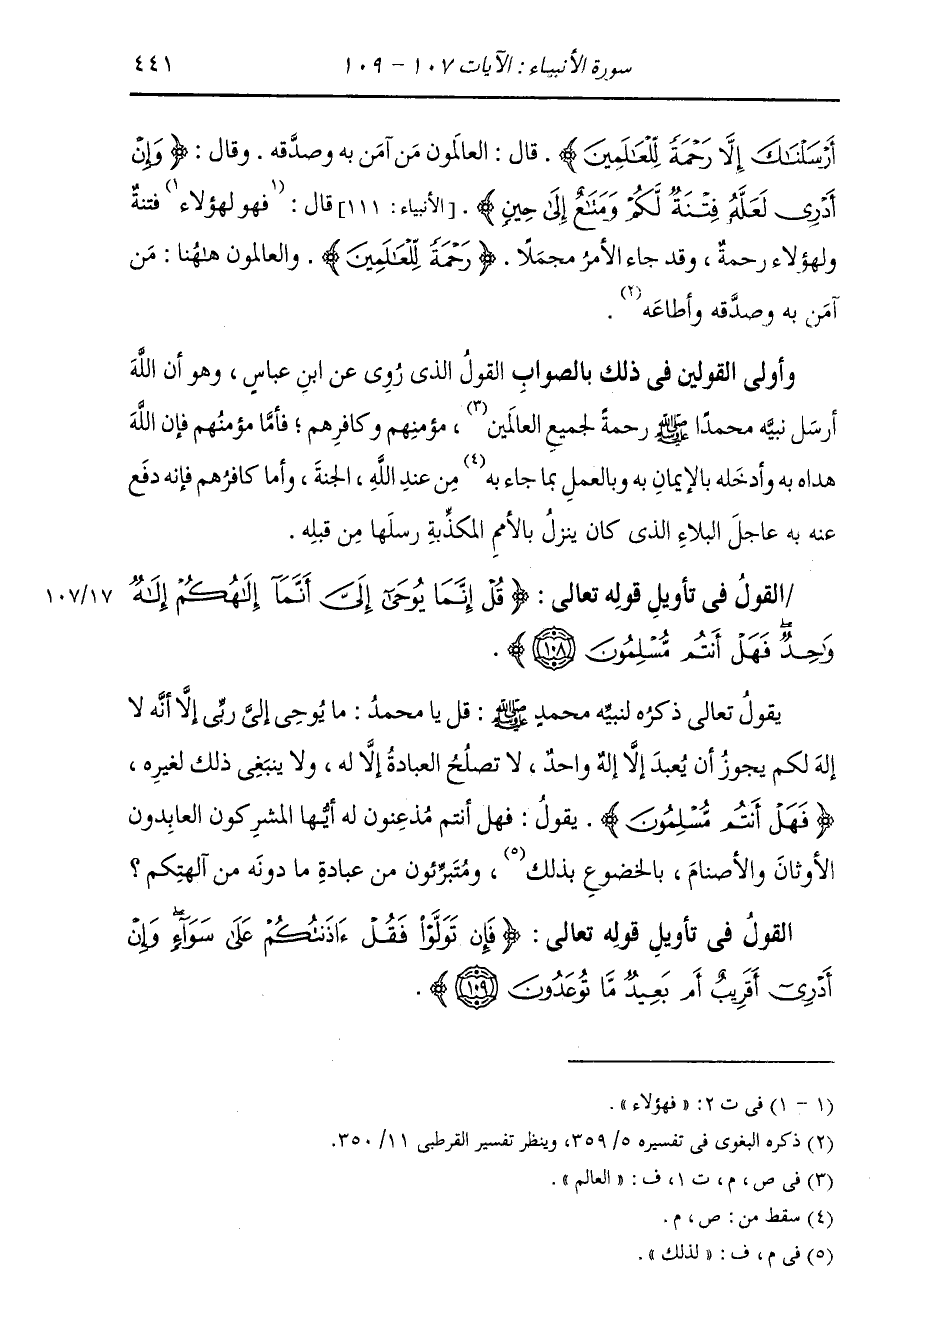 سورة الأنبياء : الآيات ١٠٧ - ١٠٩ ٤٤١
أَرْسَلْنَٰكَ إِلَّا رَحْمَةً لِّلْعَٰلَمِينَ ﴾ . قال : العالَمون مَن آمَن به وصدَّقه . وقال : ﴿ وَإِنْ
أَدْرِى لَعَلَّهُۥ فِتْنَةٌ لَّكُمْ وَمَتَٰعٌ إِلَىٰ حِينٍ ﴾ . [الأنبياء: ١١١] قال : (١فهو لهؤلاء١) فتنةٌ
ولهؤلاء رحمةٌ ، وقد جاء الأمرُ مجملًا . ﴿ رَحْمَةً لِّلْعَٰلَمِينَ ﴾ . والعالمون هلهُنا : مَن
آمَن به وصدَّقه وأطاعَه(٢) .
وأولى القولين فى ذلك بالصوابِ القولُ الذى رُوِى عن ابنِ عباسٍ ، وهو أن اللَّهَ
أرسَل نبيَّه محمدًا ﷺ رحمةً لجميعِ العالَمين(٣) ، مؤمنِهم وكافرِهم ؛ فأمَّا مؤمنُهم فإن اللَّهَ
هداه به وأدخَله بالإيمانِ به وبالعملِ بما جاء به(٤) مِن عندِ اللَّهِ ، الجنةَ ، وأما كافرُهم فإنه دفَع
عنه به عاجلَ البلاءِ الذى كان ينزلُ بالأممِ المكذِّبةِ رسلَها مِن قبلِه .
/القولُ فى تأويلِ قولِه تعالى : ﴿ قُلْ إِنَّمَا يُوحَىٰٓ إِلَىَّ أَنَّمَآ إِلَٰهُكُمْ إِلَٰهٌ ١٠٧/١٧
وَٰحِدٌ ۖ فَهَلْ أَنتُم مُّسْلِمُونَ ١٠٨ ﴾ .
يقولُ تعالى ذكرُه لنبيِّه محمدٍ ﷺ : قل يا محمدُ : ما يُوحِى إلىَّ ربِّى إلَّا أنَّه لا
إلهَ لكم يجوزُ أن يُعبدَ إلَّا إلهٌ واحدٌ ، لا تصلُحُ العبادةُ إلَّا له ، ولا ينبَغِى ذلك لغيرِه ،
﴿ فَهَلْ أَنتُم مُّسْلِمُونَ ﴾ . يقولُ : فهل أنتم مُذعِنون له أيُّها المشرِكون العابِدون
الأوثانَ والأصنامَ ، بالخضوعِ بذلك(٥) ، ومُتَبرِّئون من عبادةِ ما دونَه من آلهتِكم ؟
القولُ فى تأويلِ قولِه تعالى : ﴿ فَإِن تَوَلَّوْاْ فَقُلْ ءَاذَنتُكُمْ عَلَىٰ سَوَآءٍ ۖ وَإِنْ
أَدْرِىٓ أَقَرِيبٌ أَم بَعِيدٌ مَّا تُوعَدُونَ ١٠٩ ﴾ .
(١ - ١) فى ت ٢: « فهؤلاء » .
(٢) ذكره البغوى فى تفسيره ٥/ ٣٥٩، وينظر تفسير القرطبى ١١/ ٣٥٠.
(٣) فى ص ، م ، ت ١، ف : « العالم » .
(٤) سقط من : ص ، م .
(٥) فى م ، ف : « لذلك » .